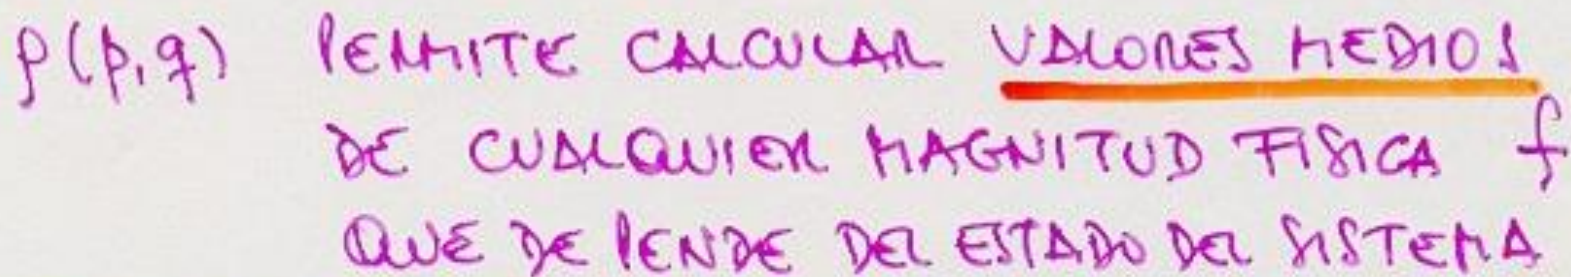 ρ(p,q) PERMITE CALCULAR VALORES MEDIOS
DE CUALQUIER MAGNITUD FISICA f
QUE DEPENDE DEL ESTADO DEL SISTEMA